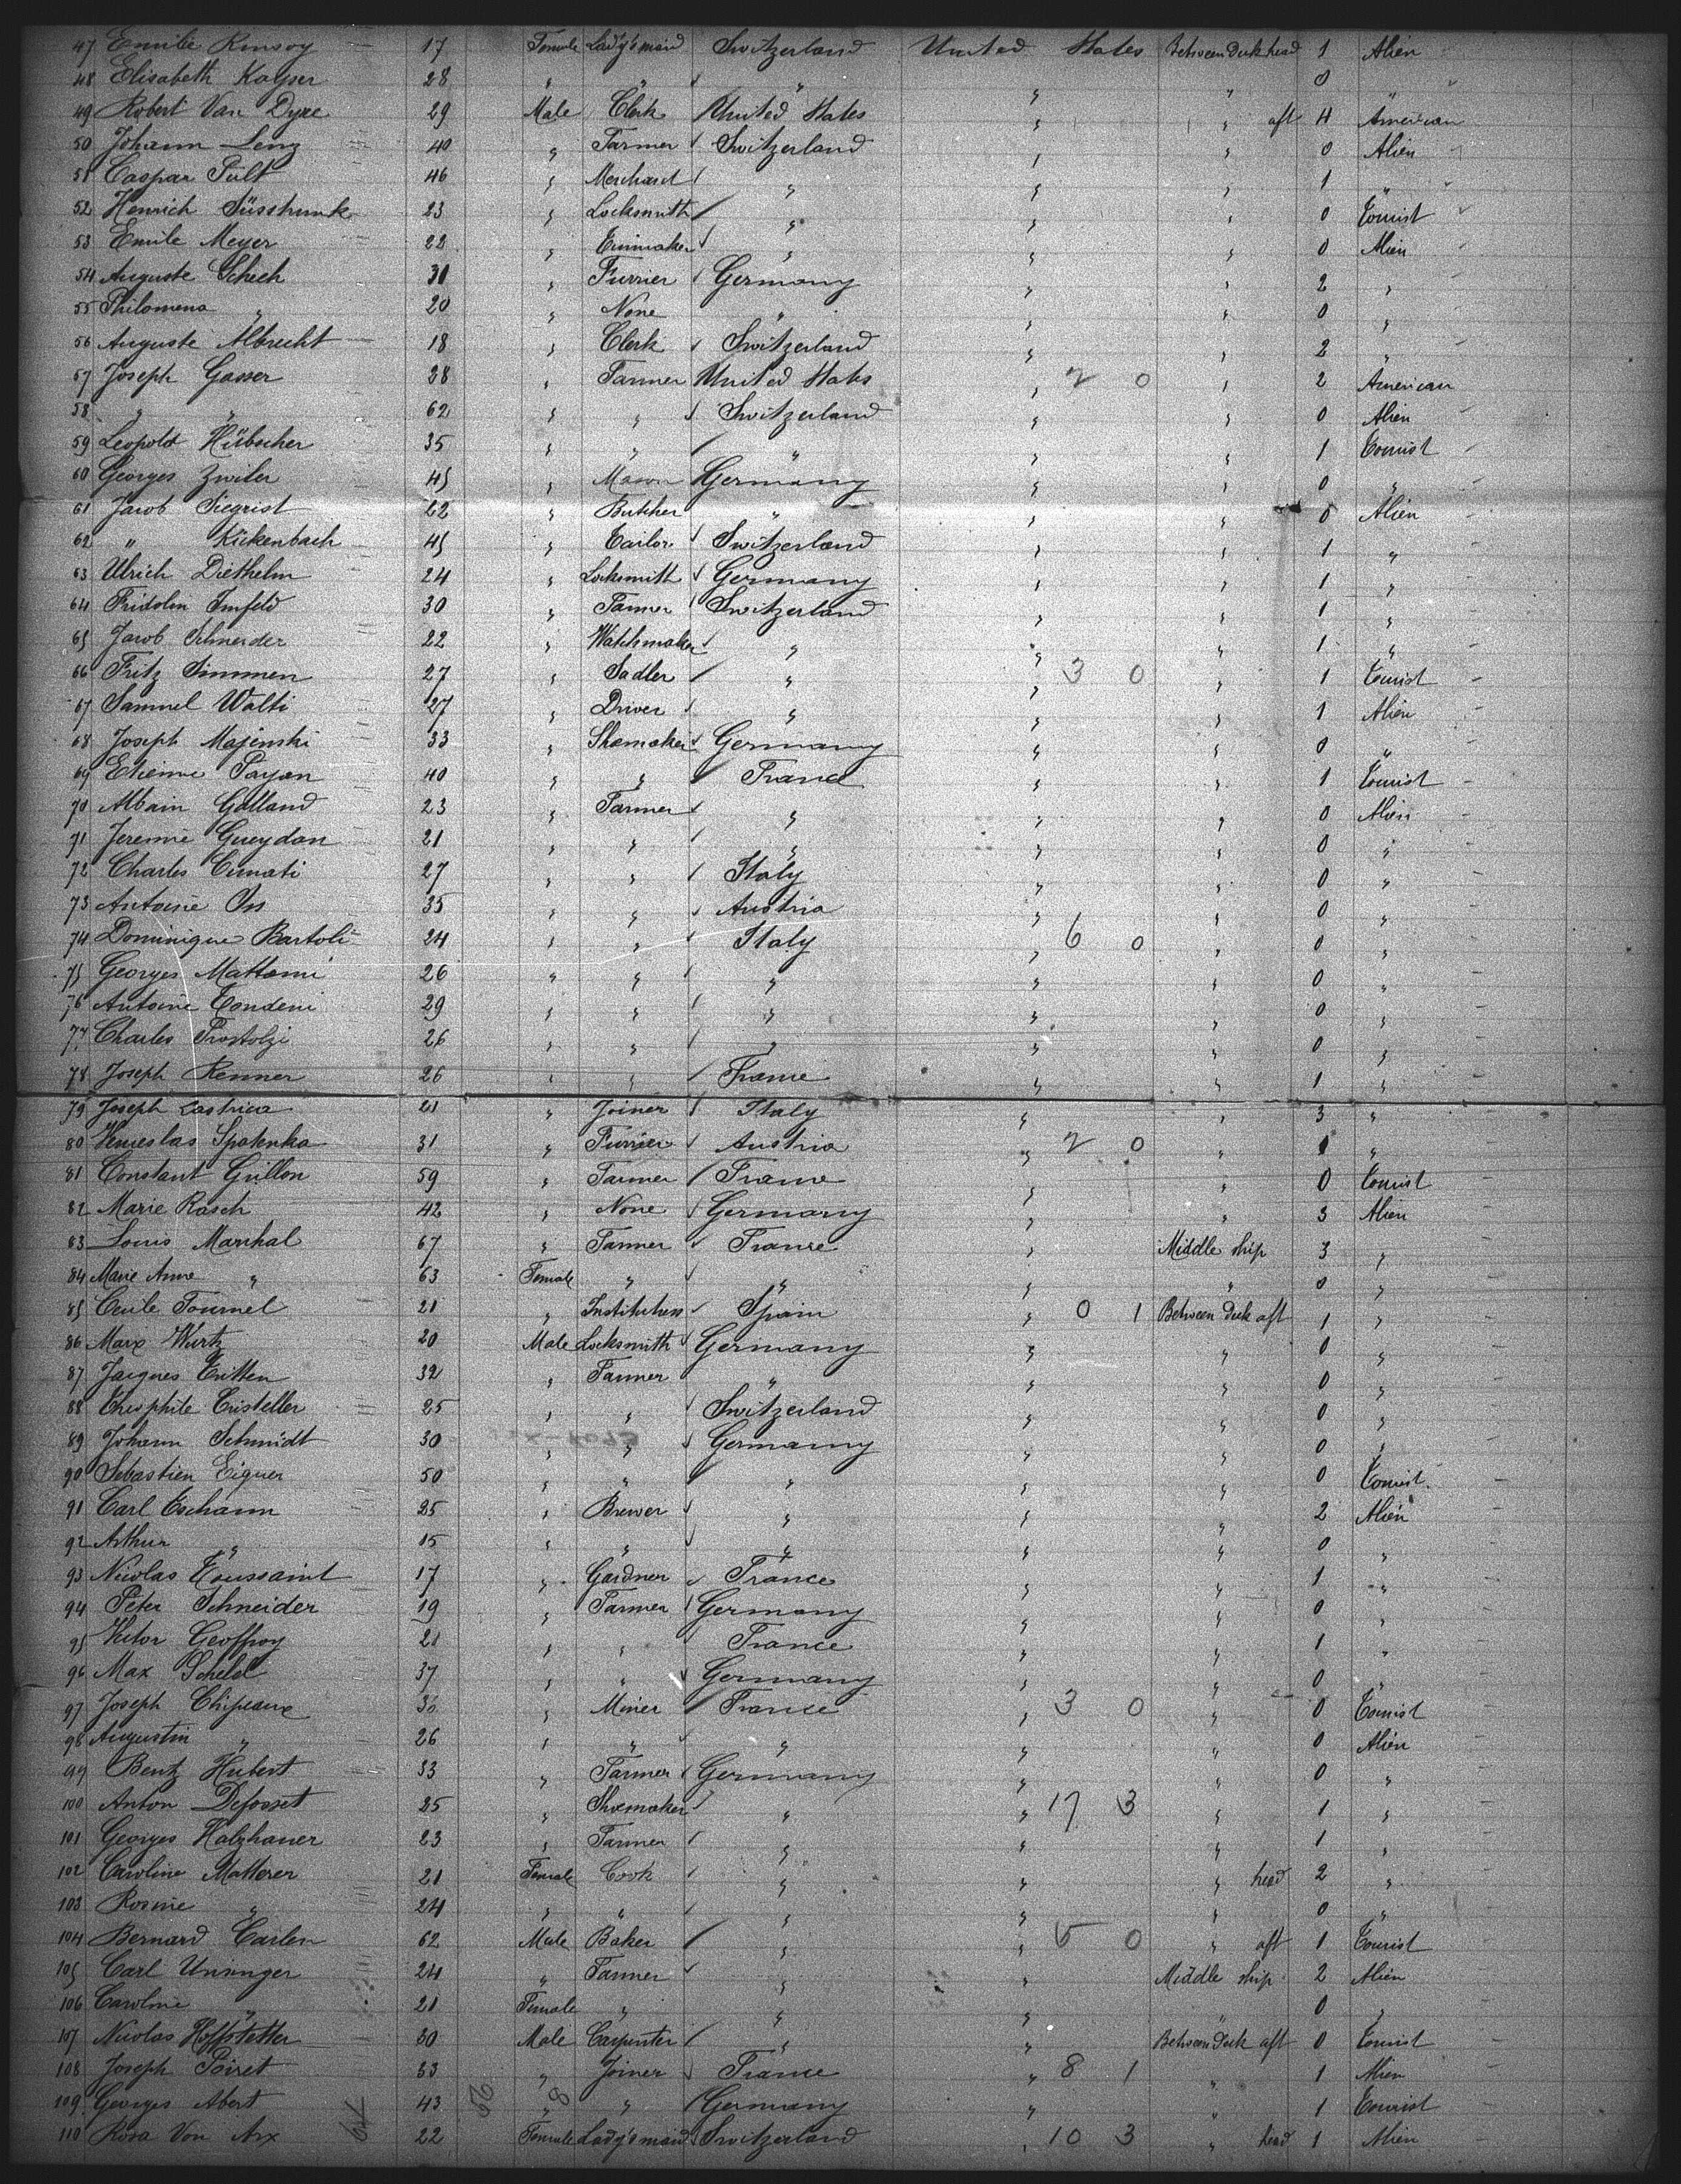 47 Emilie Rinsoy 17 Female Lady's maid Switzerland United States Between deck head 1 Alien
48 Elisabeth Kayser 28 " " " " " 0 "
49 Robert Van Dyke 29 Male Clerk United States " " aft 4 American
50 Johann Leng 40 " Farmer Switzerland " " 0 Alien
51 Caspar Pült 46 " Merchant " " " 1 "
52 Henrich Süsstrunk 23 " Locksmith " " " 0 Tourist
53 Emile Meyer 22 " " " " 0 Alien
54 Auguste Schech 31 " Furrier Germany " " 2 "
55 Philomena " 20 " None " " " 0 "
56 Auguste Albrecht 18 " Clerk Switzerland " " 2 "
57 Joseph Gasser 28 " Farmer United States " 2 0 " 2 American
58 " " 62 " " Switzerland " " 0 Alien
59 Leopold Hübscher 35 " " " " " 1 Tourist
60 Georges Zwiler 45 " Mason Germany " " 0 "
61 Jacob Siegrist 22 " Butcher " " " 0 Alien
62 " Rickenbach 45 " Tailor Switzerland " " 1 "
63 Ulrich Diethelm 24 " Locksmith Germany " " 1 "
64 Fridolin Imfeld 30 " Farmer Switzerland " " 1 "
65 Jacob Schneider 22 " Watchmaker " " " 1 "
66 Fritz Simmen 27 " Sadler " " 3 0 " 1 Tourist
67 Samuel Walti 27 " Driver " " " 1 Alien
68 Joseph Majenski 33 " Shoemaker Germany " " 0 "
69 Etienne Payan 40 " " France " " 1 Tourist
70 Albain Galland 23 " Farmer " " " 0 Alien
71 Jeremie Gueydan 21 " " " " " 0 "
72 Charles Cimati 27 " " Italy " " 0 "
73 Antoine Oss 35 " " Austria " " 0 "
74 Dominique Bartoli 24 " " Italy " 6 0 " 0 "
75 Georges Mattoni 26 " " " " " 0 "
76 Antoine Tondeni 29 " " " " " 0 "
77 Charles Prostolzi 26 " " " " " 0 "
78 Joseph Renner 26 " " France " " 1 "
79 Joseph Lastrica 21 " Joiner Italy " " 3 "
80 Venceslas Spatenka 31 " Furrier Austria " 2 0 " "
81 Constant Grillon 59 " Farmer France " " 0 Tourist
82 Marie Rasch 42 " None Germany " " 3 Alien
83 Louis Marchal 67 " Farmer France " Middle ship 3 "
84 Marie Anne " 63 Female " " " " 0 "
85 Cecile Tournel 21 " Spain " 0 1 Between deck aft 1 "
86 Marx Wurtz 20 Male Locksmith Germany " " 0 "
87 Jacques Tritten 32 " Farmer " " " 0 "
88 Theophile Cristeller 25 " " Switzerland " " 0 "
89 Johann Schmidt 30 " " Germany " " 0 "
90 Sebastien Eiguer 50 " " " " " 0 Tourist
91 Carl Eschann 25 " Brewer " " " 2 Alien
92 Arthur " 15 " " " " " 0 "
93 Nicolas Toussaint 17 " Gardner France " " 1 "
94 Peter Schneider 19 " Farmer Germany " " 0 "
95 Victor Geoffroy 21 " " France " " 1 "
96 Max Scheld 37 " " Germany " " 0 "
97 Joseph Chipeaux 36 " Miner France " 3 0 " 0 Tourist
98 Augustin " 26 " " " " " 0 Alien
99 Bentz Hubert 33 " Farmer Germany " " 0 "
100 Anton Defosset 25 " Shoemaker " " 17 3 " 1 "
101 Georges Halzhauer 23 " Farmer " " " 1 "
102 Caroline Matterer 21 Female Cook " " " head 2 "
103 Rosine " 24 " " " " " 0 "
104 Bernard Carlen 62 Male Baker " " 5 0 " aft 1 Tourist
105 Carl Unninger 24 " Farmer " " Middle ship 2 Alien
106 Caroline " 21 Female " " " " 0 "
107 Nicolas Hoffstetter 30 Male Carpenter " " Between deck aft 0 Tourist
108 Joseph Poiret 53 " Joiner France " 8 1 " 1 Alien
109 Georges Abert 43 " " Germany " " 1 Tourist
110 Rosa Von Arx 22 Female Lady's maid Switzerland " 10 3 " head 1 Alien